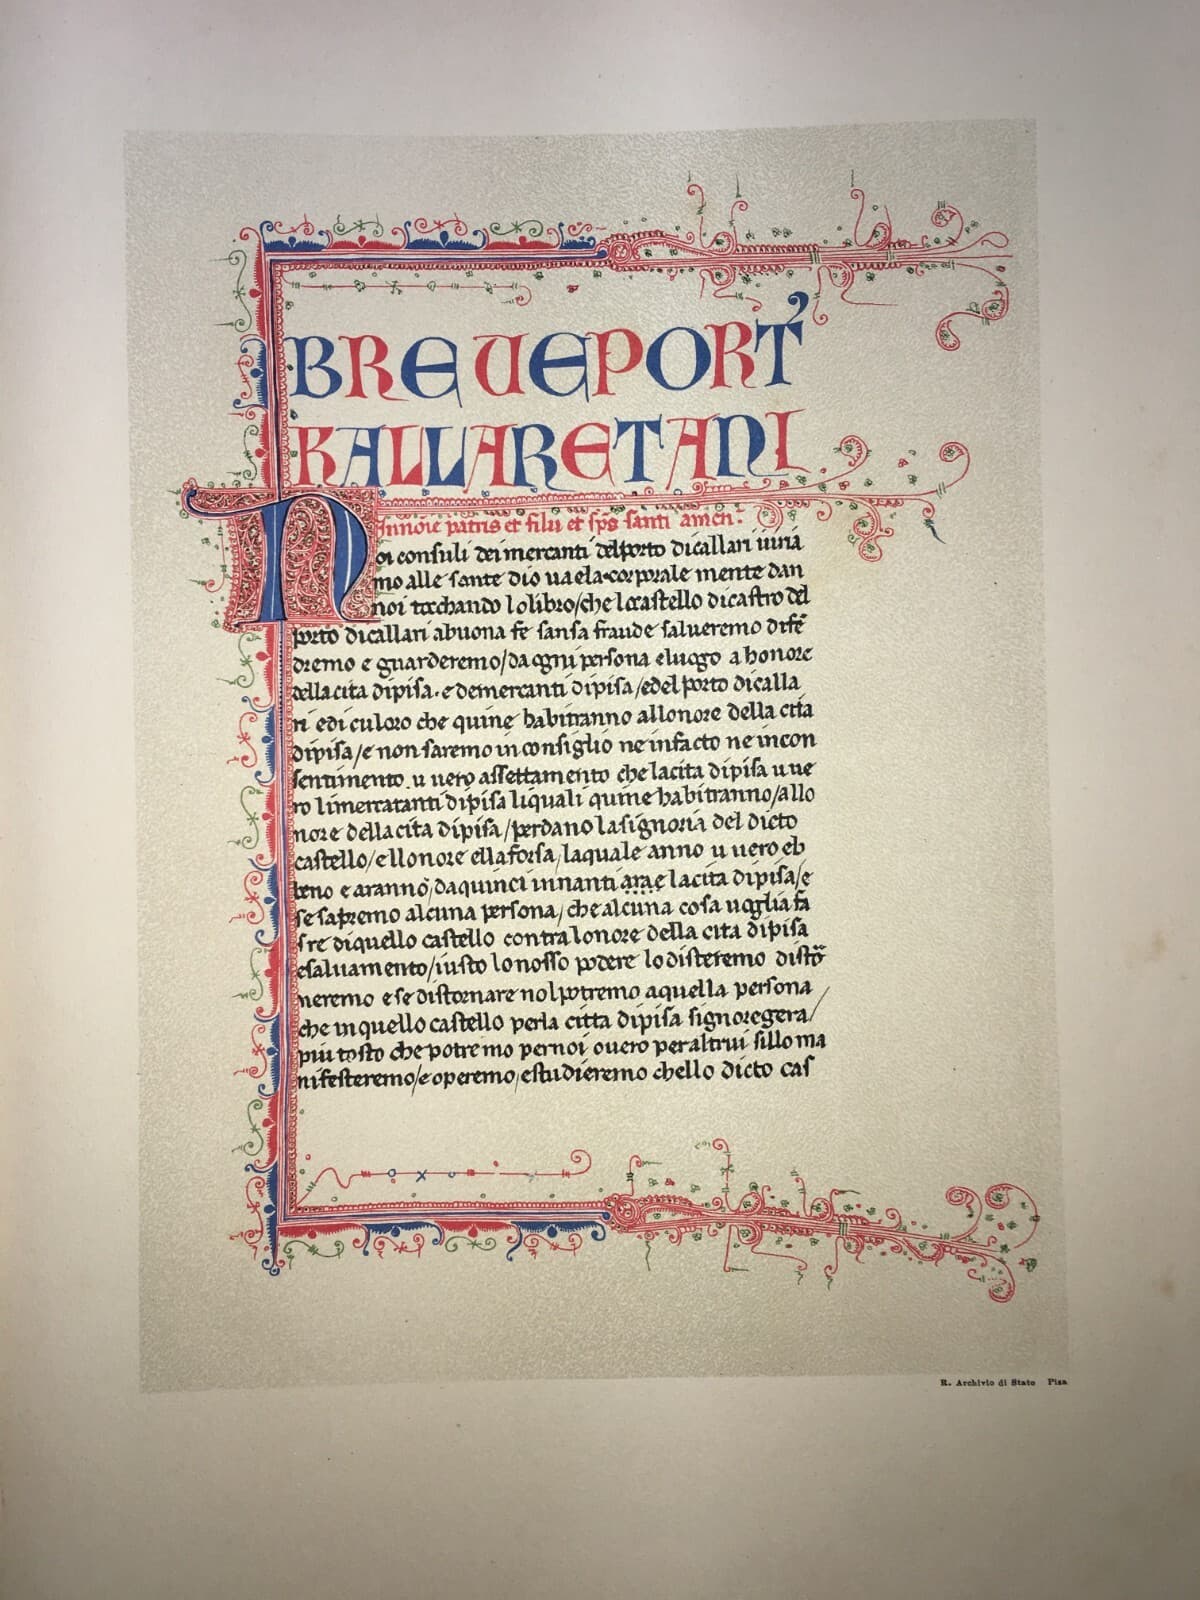 BREUEPORT'
KALLARETANI
Innoīe patris et filii et sp̄s santi amen.
Noi consuli dei mercanti del porto di callari iuria
mo alle sante dio uaela corporale mente dan
noi tocchando lo libro/che lo castello di castro del
porto di callari a buona fe sansa fraude salueremo difē
dremo e guarderemo/da ogni persona e luogo a honore
della cita di pisa. e de mercanti di pisa/e del porto di calla
ri e di culoro che quine habitranno allonore della cita
di pisa/e non saremo in consiglio ne in facto ne in con
sentimento u uero assettamento che la cita di pisa u ue
ro li mercatanti di pisa li quali quine habitranno/allo
nore della cita di pisa/perdano la signoria del dicto
castello/e llonore e lla forsa, la quale anno u uero eb
beno e aranno, da quinci innanti arae la cita di pisa/e
se sapremo alcuna persona, che alcuna cosa uoglia fa
sre di quello castello contra lonore della cita di pisa
e saluamento/iusto lo nosso podere lo disteremo disto
neremo e se distornare nol potremo a quella persona
che in quello castello per la citta di pisa signoregera/
più tosto che potremo per noi ouero per altrui sillo ma
nifesteremo/e operemo, e studieremo che llo dicto cas
R. Archivio di Stato Pisa